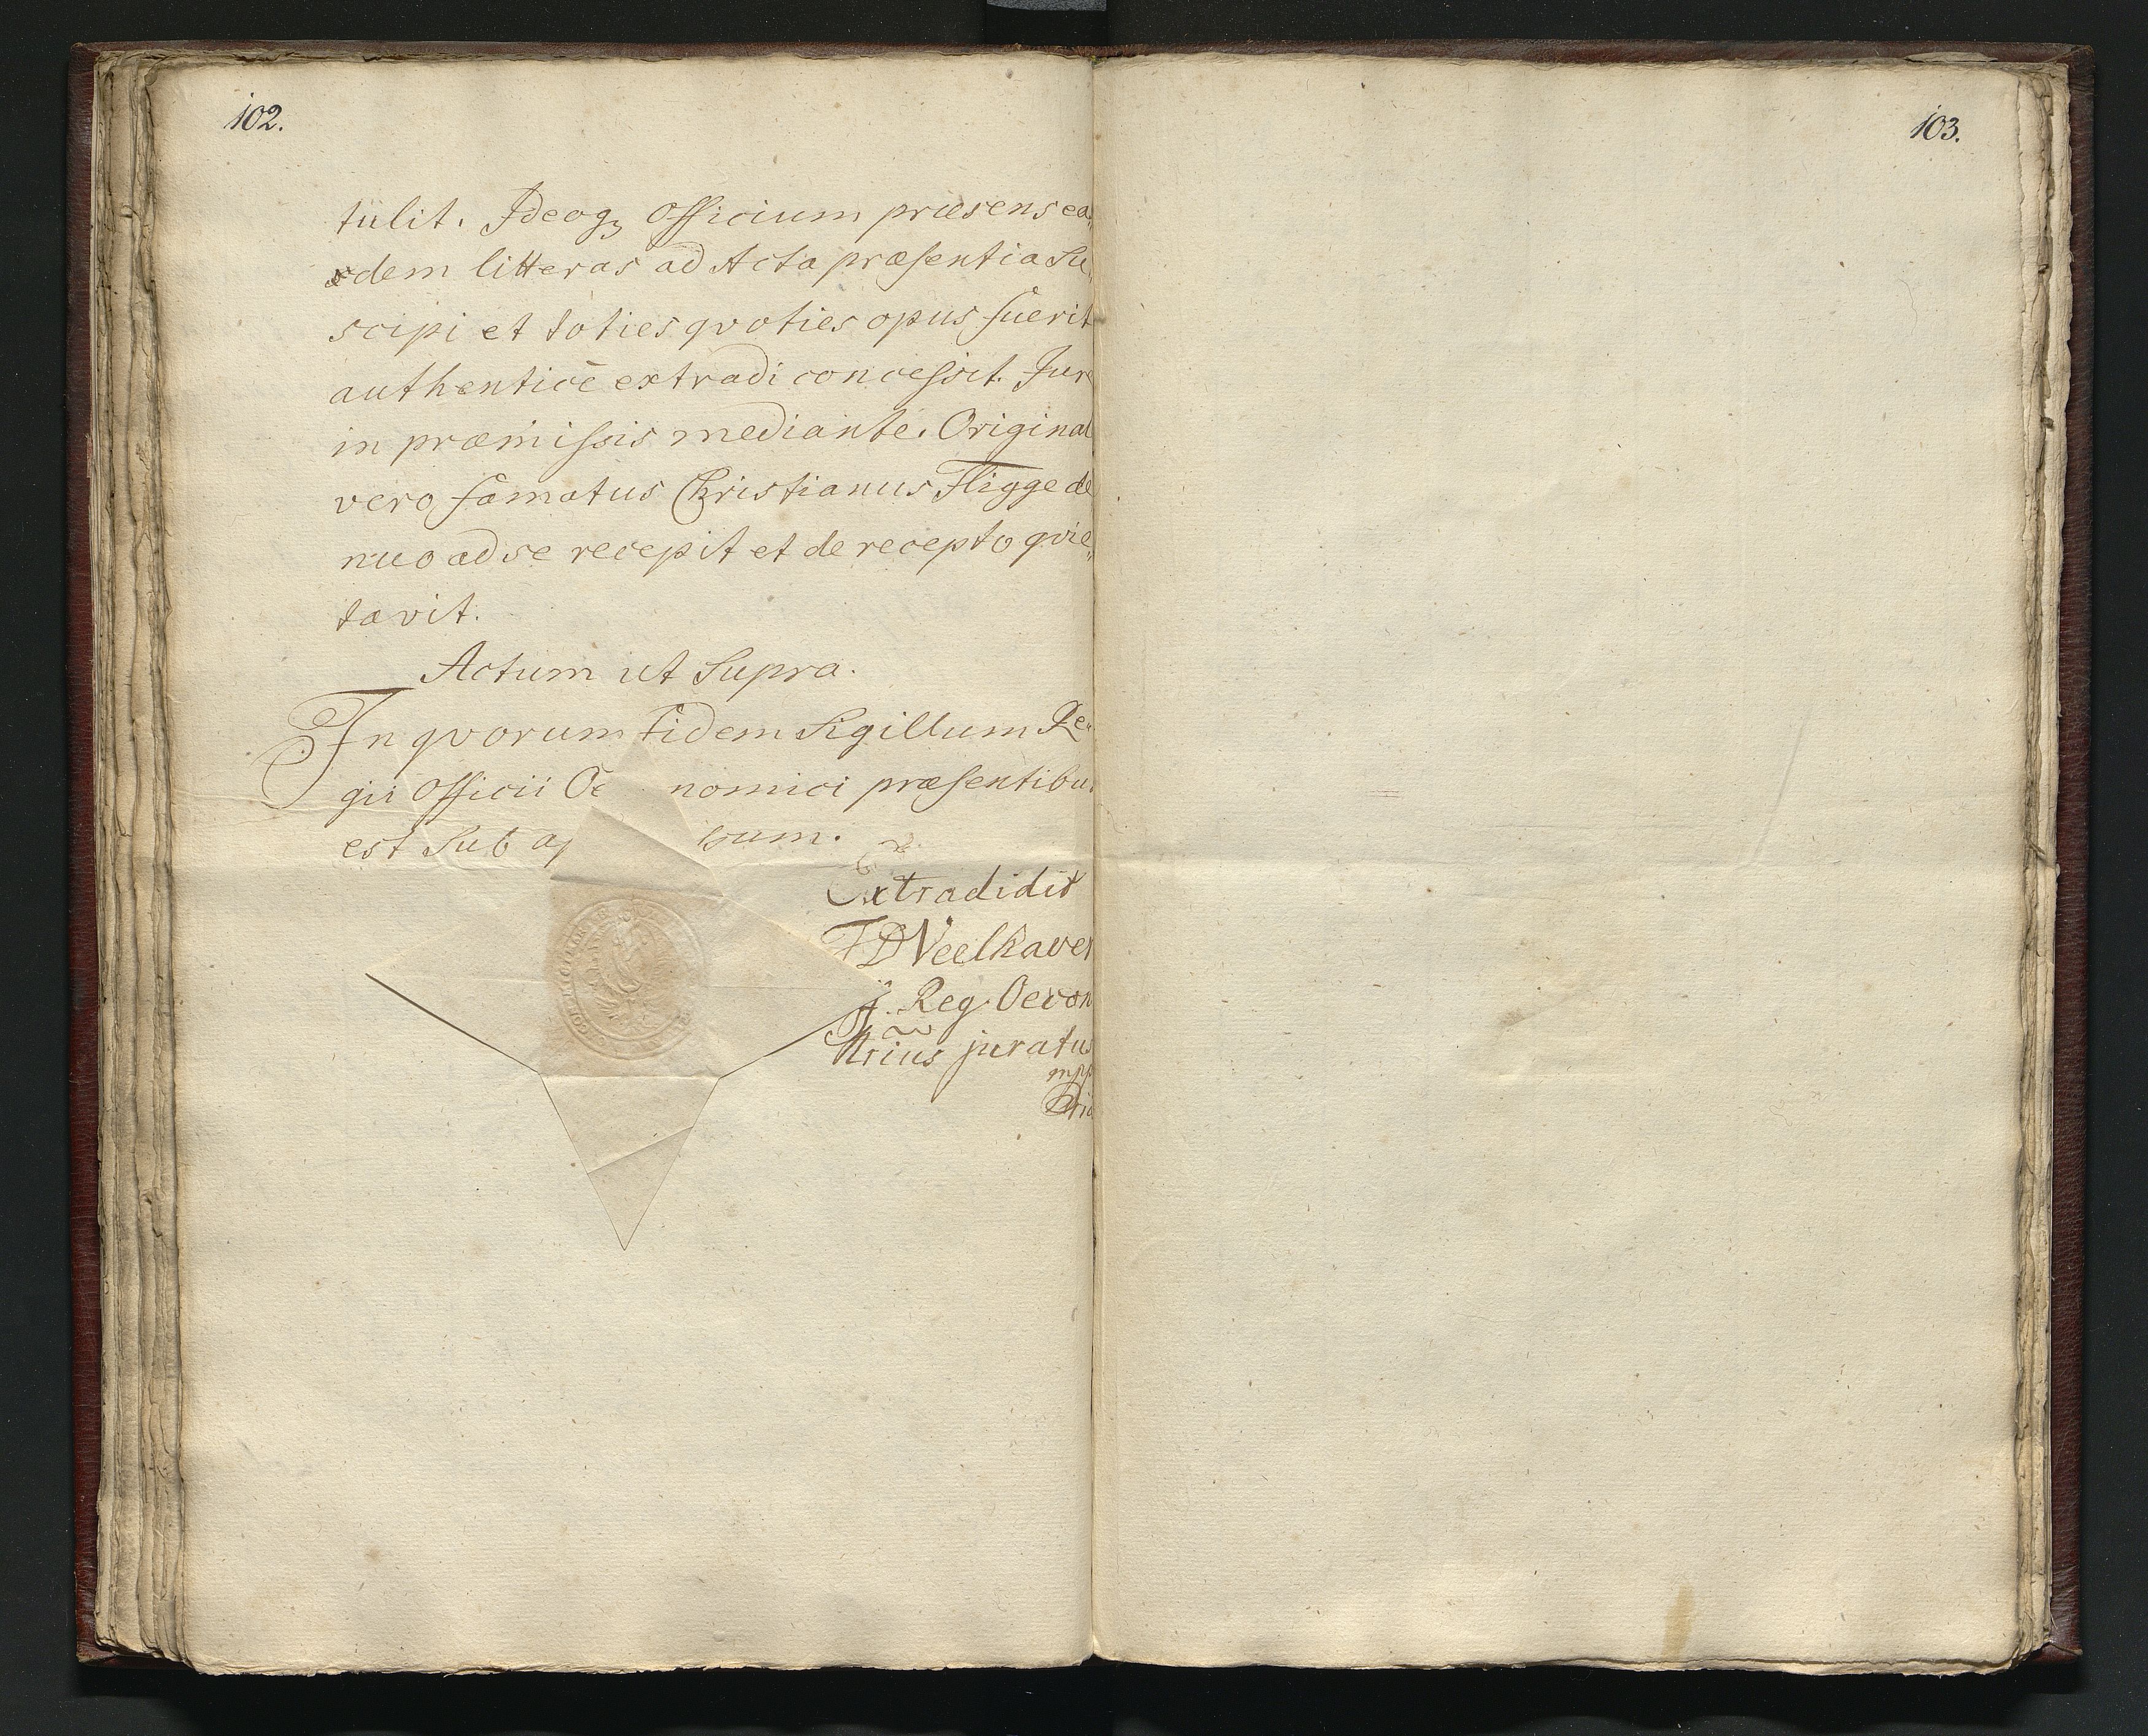 102.
tulit. Ideoq; Officium præsens ea„
dem litteras ad Acta præsentia Su„
scipi et toties qvoties opus fuerit
authenticè extradi concessit. Jure
in præmissis mediante. Original
vero famatus Christianus Fligge de
nuo ad se recepit et de recepto qvie„
tavit.
Actum ut Supra.
In qvorum fidem Sigillum Re„
gii Officii Oe nomici præsentibus
est Sub ap sum.
Extradidit
Reg. Oecon
juratus
mpp
103.